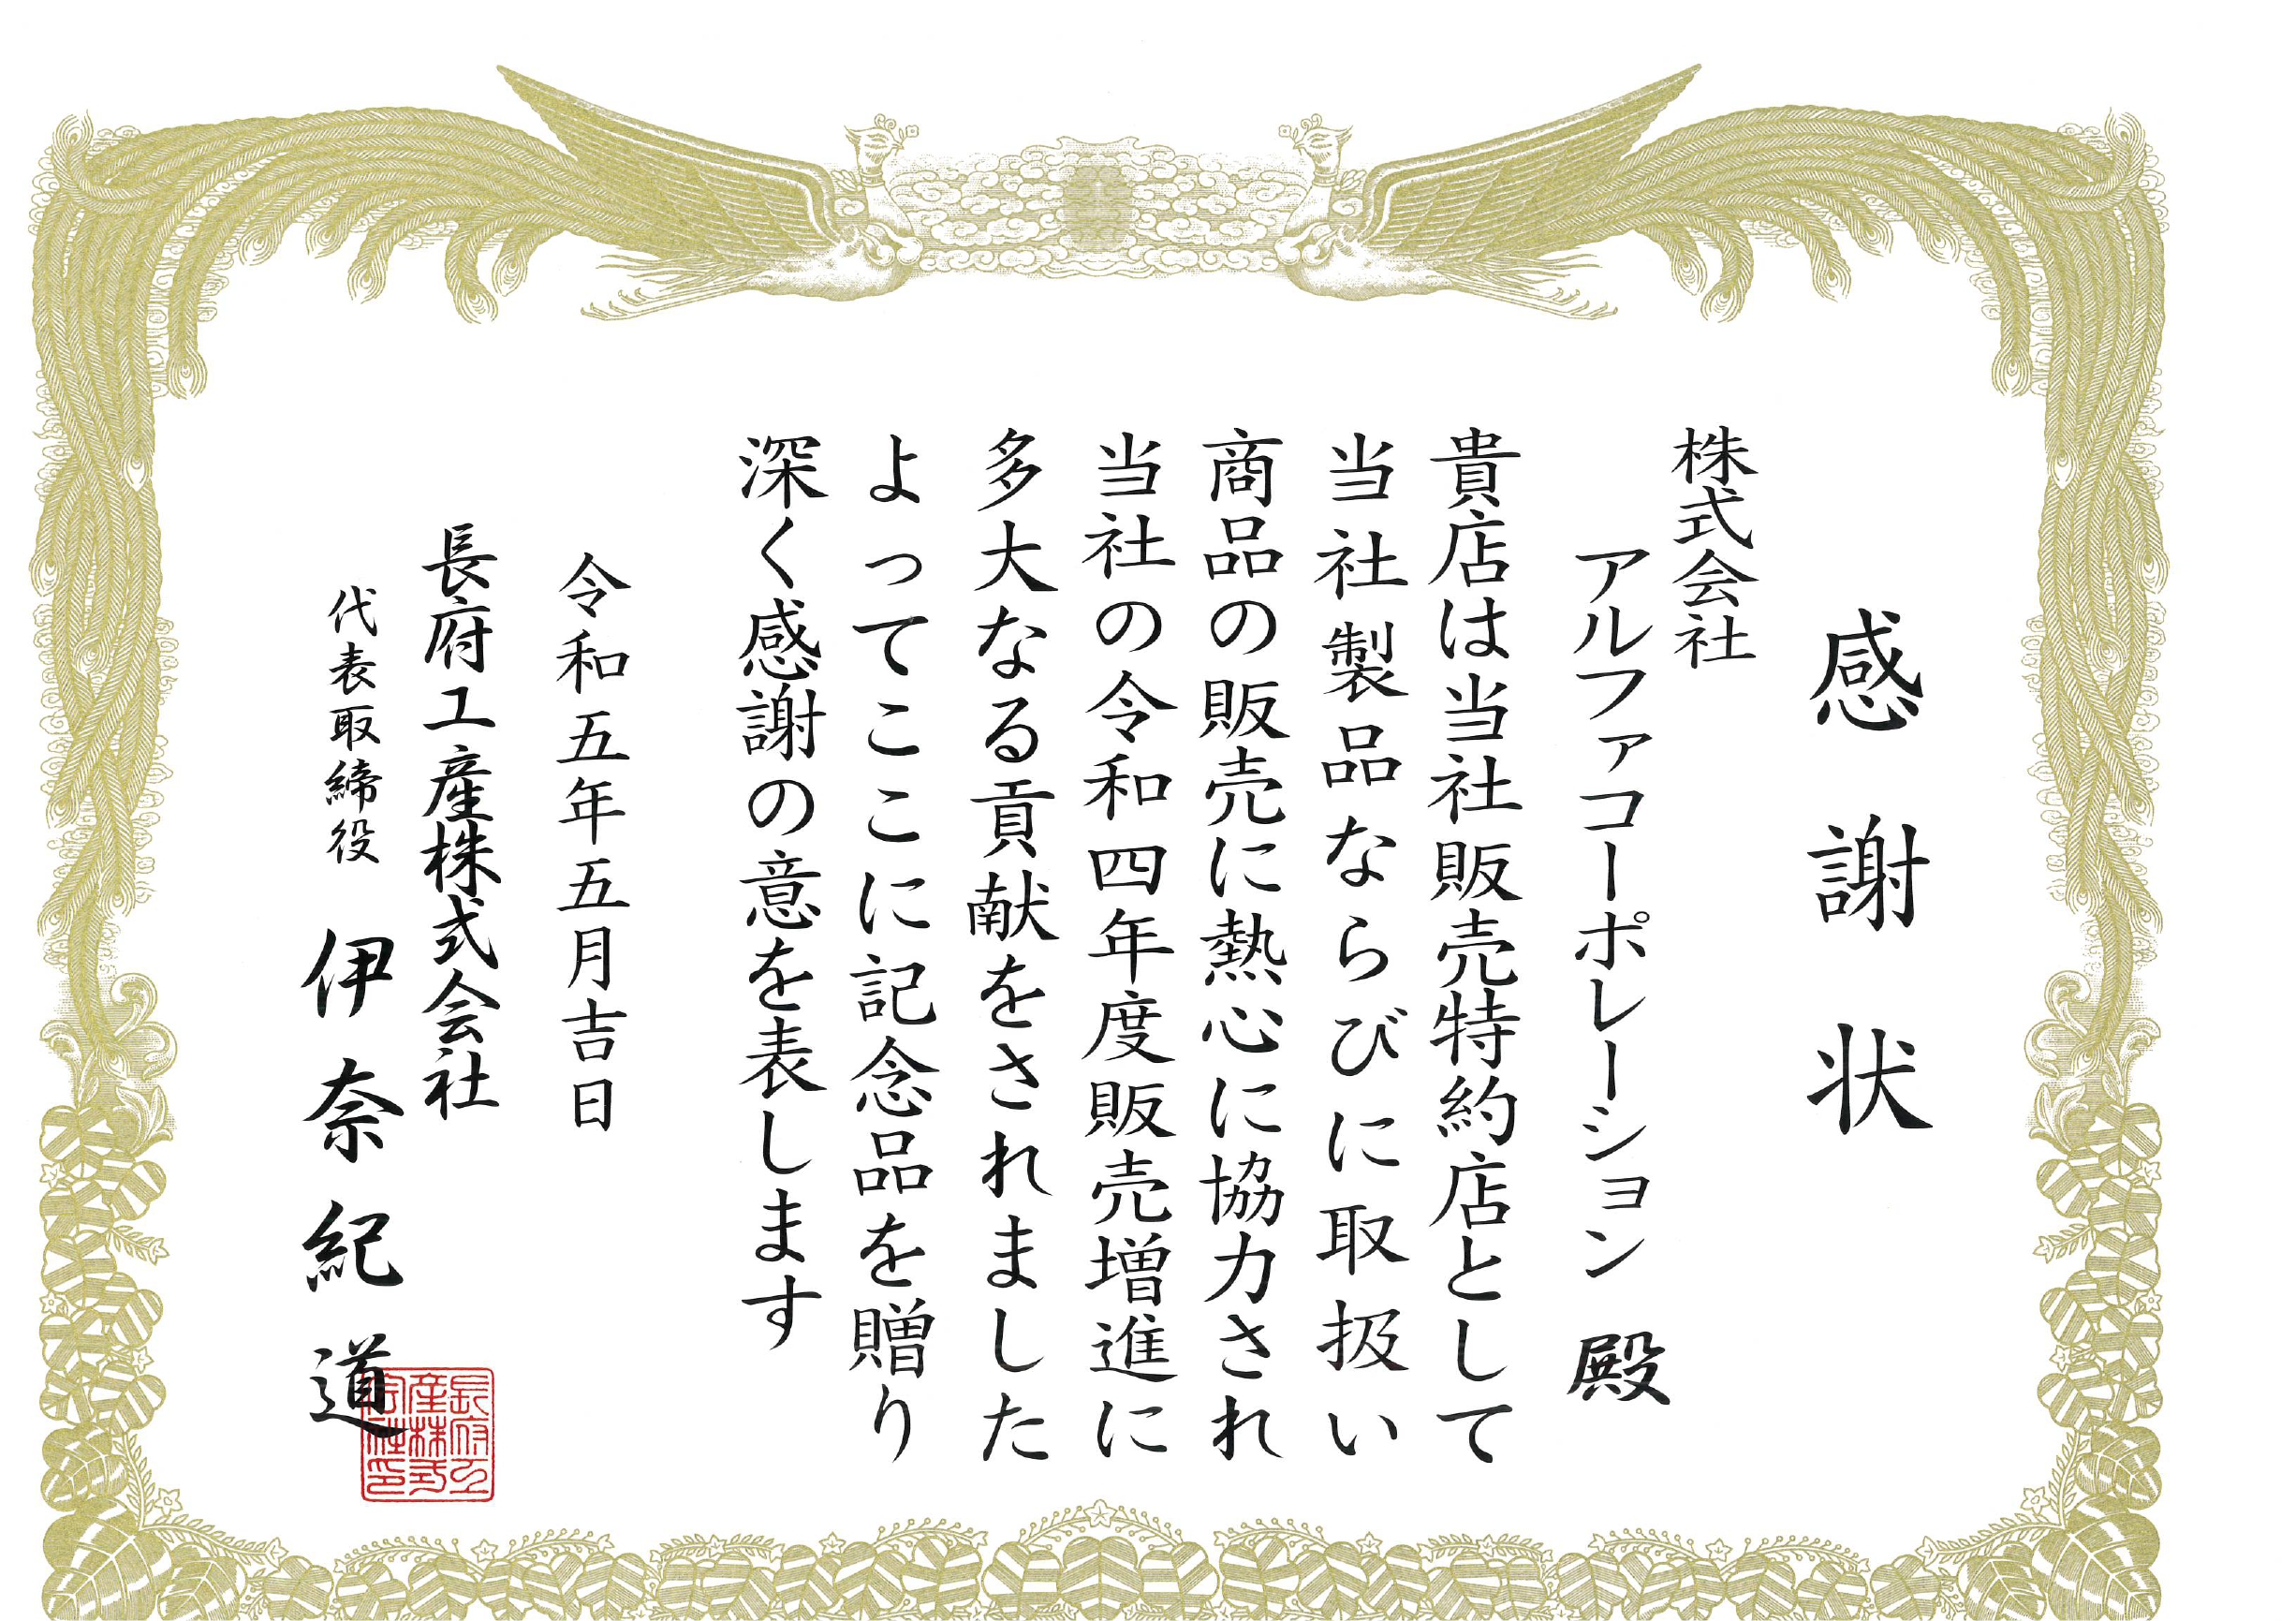 感謝状
株式会社
アルファコーポレーション 殿
貴店は当社販売特約店として
当社製品ならびに取扱い
商品の販売に熱心に協力され
当社の令和四年度販売増進に
多大なる貢献をされました
よってここに記念品を贈り
深く感謝の意を表します
令和五年五月吉日
長府工産株式会社
代表取締役 伊奈紀道
長府工
産株式
会社印